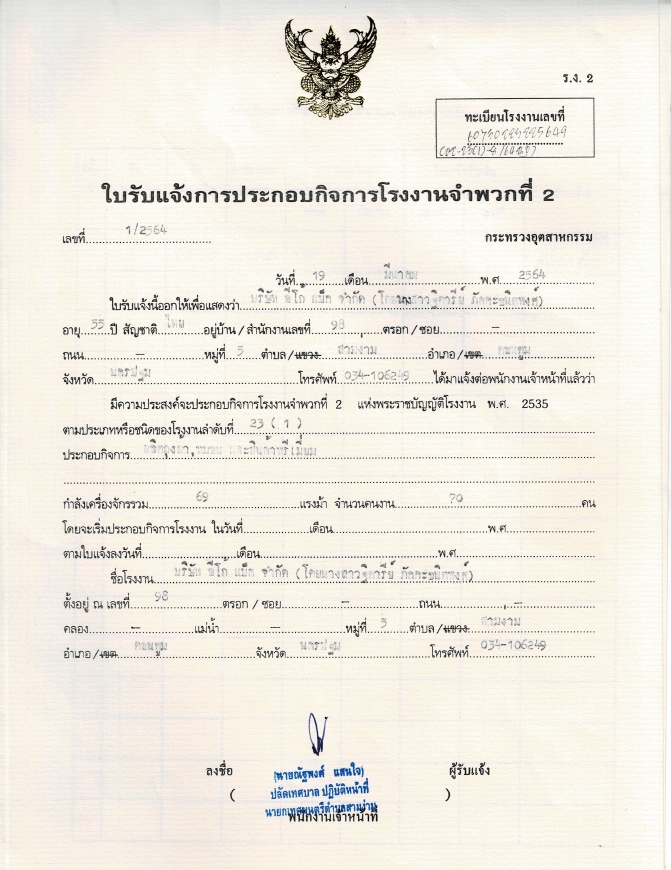 ร.ง. 2
ทะเบียนโรงงานเลขที่
ใบรับแจ้งการประกอบกิจการโรงงานจำพวกที่ 2
เลขที่ 1/2564
กระทรวงอุตสาหกรรม
วันที่ 19 เดือน มีนาคม พ.ศ. 2564
ใบรับแจ้งนี้ออกให้เพื่อแสดงว่า บริษัท จำกัด
อายุ 55 ปี สัญชาติ ไทย อยู่บ้าน / สำนักงานเลขที่ 98 ตรอก / ซอย –
ถนน – หมู่ที่ 5 ตำบล/แขวง สามง่าม อำเภอ/เขต ดอนตูม
จังหวัด นครปฐม โทรศัพท์ 034-106249 ได้มาแจ้งต่อพนักงานเจ้าหน้าที่แล้วว่า
มีความประสงค์จะประกอบกิจการโรงงานจำพวกที่ 2 แห่งพระราชบัญญัติโรงงาน พ.ศ. 2535
ตามประเภทหรือชนิดของโรงงานลำดับที่ 23 ( 1 )
ประกอบกิจการ
กำลังเครื่องจักรรวม 69 แรงม้า จำนวนคนงาน 70 คน
โดยจะเริ่มประกอบกิจการโรงงาน ในวันที่ เดือน พ.ศ.
ตามใบแจ้งลงวันที่ เดือน พ.ศ.
ชื่อโรงงาน บริษัท จำกัด
ตั้งอยู่ ณ เลขที่ 98 ตรอก / ซอย – ถนน –
คลอง – แม่น้ำ – หมู่ที่ 5 ตำบล/แขวง สามง่าม
อำเภอ/เขต ดอนตูม จังหวัด นครปฐม โทรศัพท์ 034-106249
ลงชื่อ ผู้รับแจ้ง
(นายณัฐพงศ์ แสนใจ)
( ปลัดเทศบาล ปฏิบัติหน้าที่ )
นายกเทศมนตรีตำบลสามง่าม
พนักงานเจ้าหน้าที่